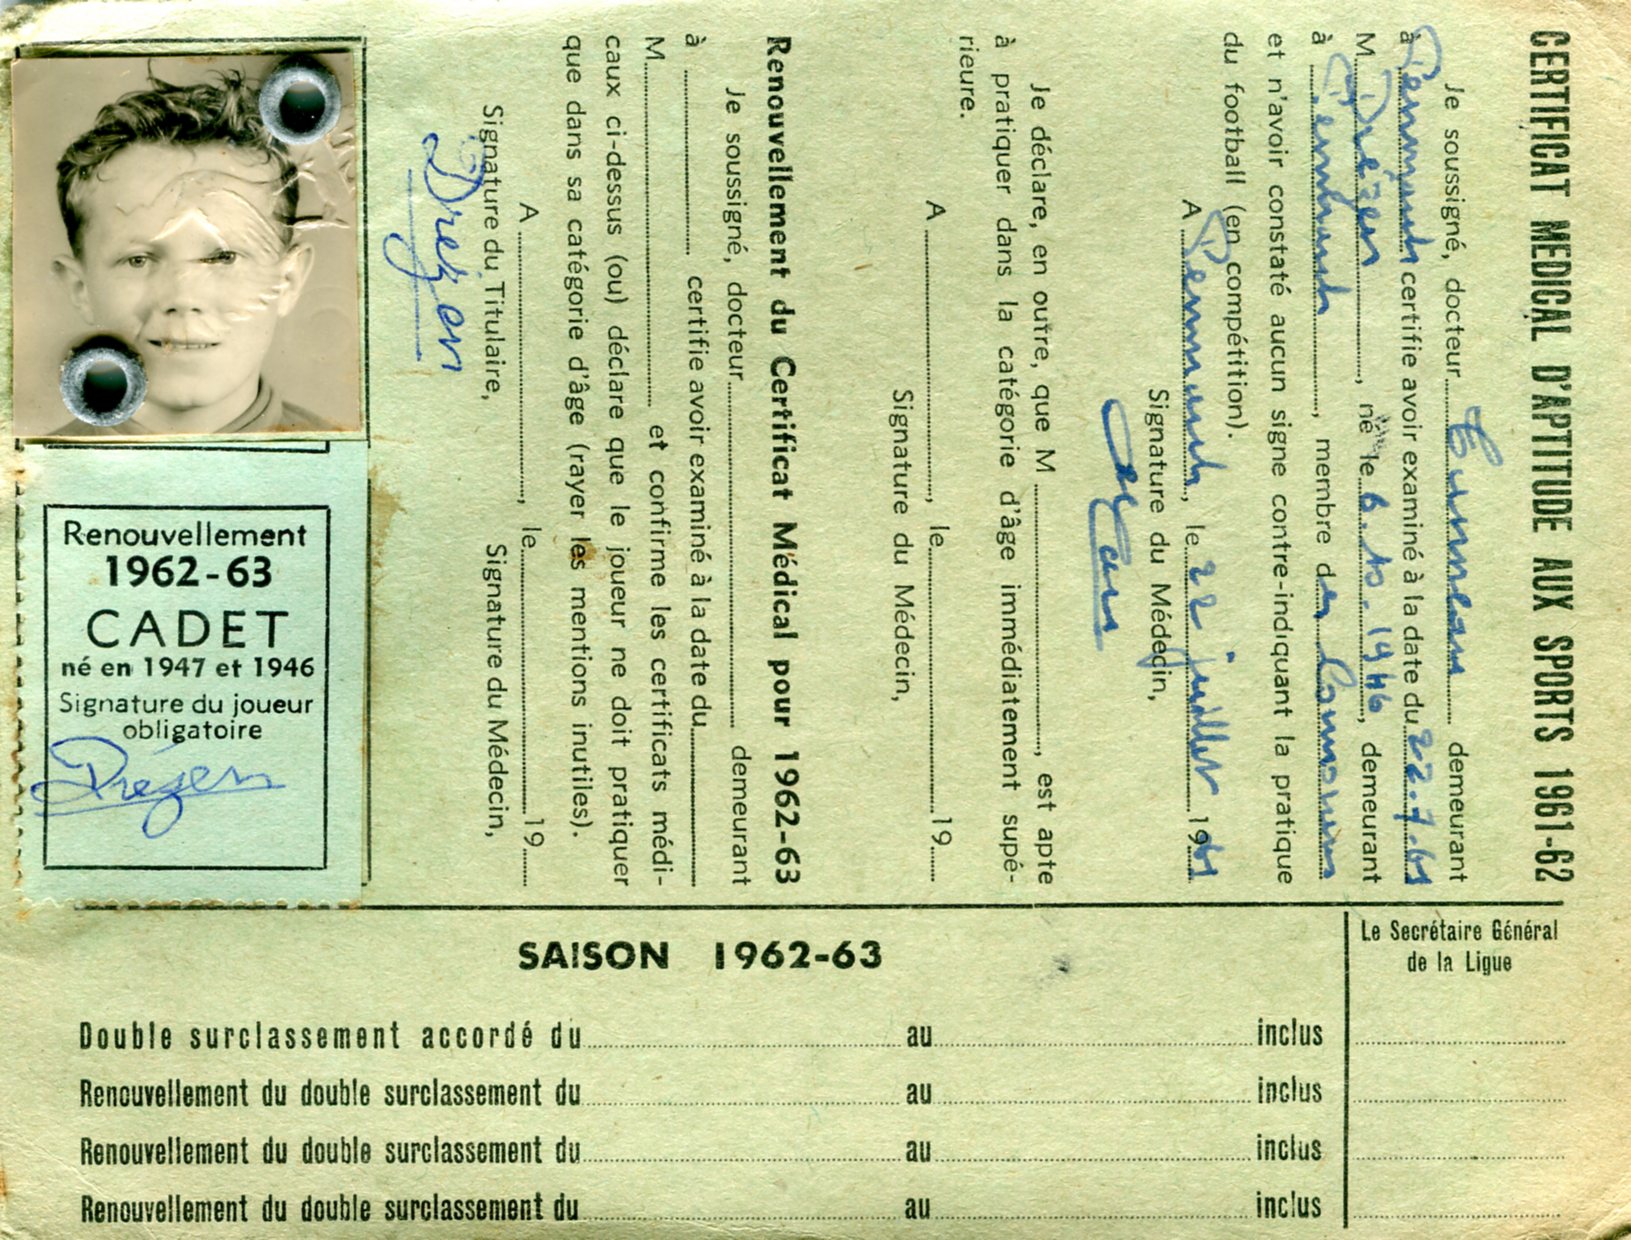 CERTIFICAT MEDICAL D'APTITUDE AUX SPORTS 1961-62
Je soussigné, docteur demeurant
à certifie avoir examiné à la date du 22.7.61
M. Drézen, né le 6.10.1946, demeurant
à, membre des
et n'avoir constaté aucun signe contre-indiquant la pratique
du football (en compétition).
A, le 22 juillet 1961
Signature du Médecin,
Je déclare, en outre, que M, est apte
à pratiquer dans la catégorie d'âge immédiatement supé-
rieure.
A, le 19
Signature du Médecin,
Renouvellement du Certificat Médical pour 1962-63
Je soussigné, docteur demeurant
à certifie avoir examiné à la date du
M et confirme les certificats médi-
caux ci-dessus (ou) déclare que le joueur ne doit pratiquer
que dans sa catégorie d'âge (rayer les mentions inutiles).
A, le 19
Signature du Titulaire, Signature du Médecin,
Drézen
Renouvellement
1962-63
CADET
né en 1947 et 1946
Signature du joueur
obligatoire
Drézen
SAISON 1962-63
Le Secrétaire Général
de la Ligue
Double surclassement accordé du au inclus
Renouvellement du double surclassement du au inclus
Renouvellement du double surclassement du au inclus
Renouvellement du double surclassement du au inclus